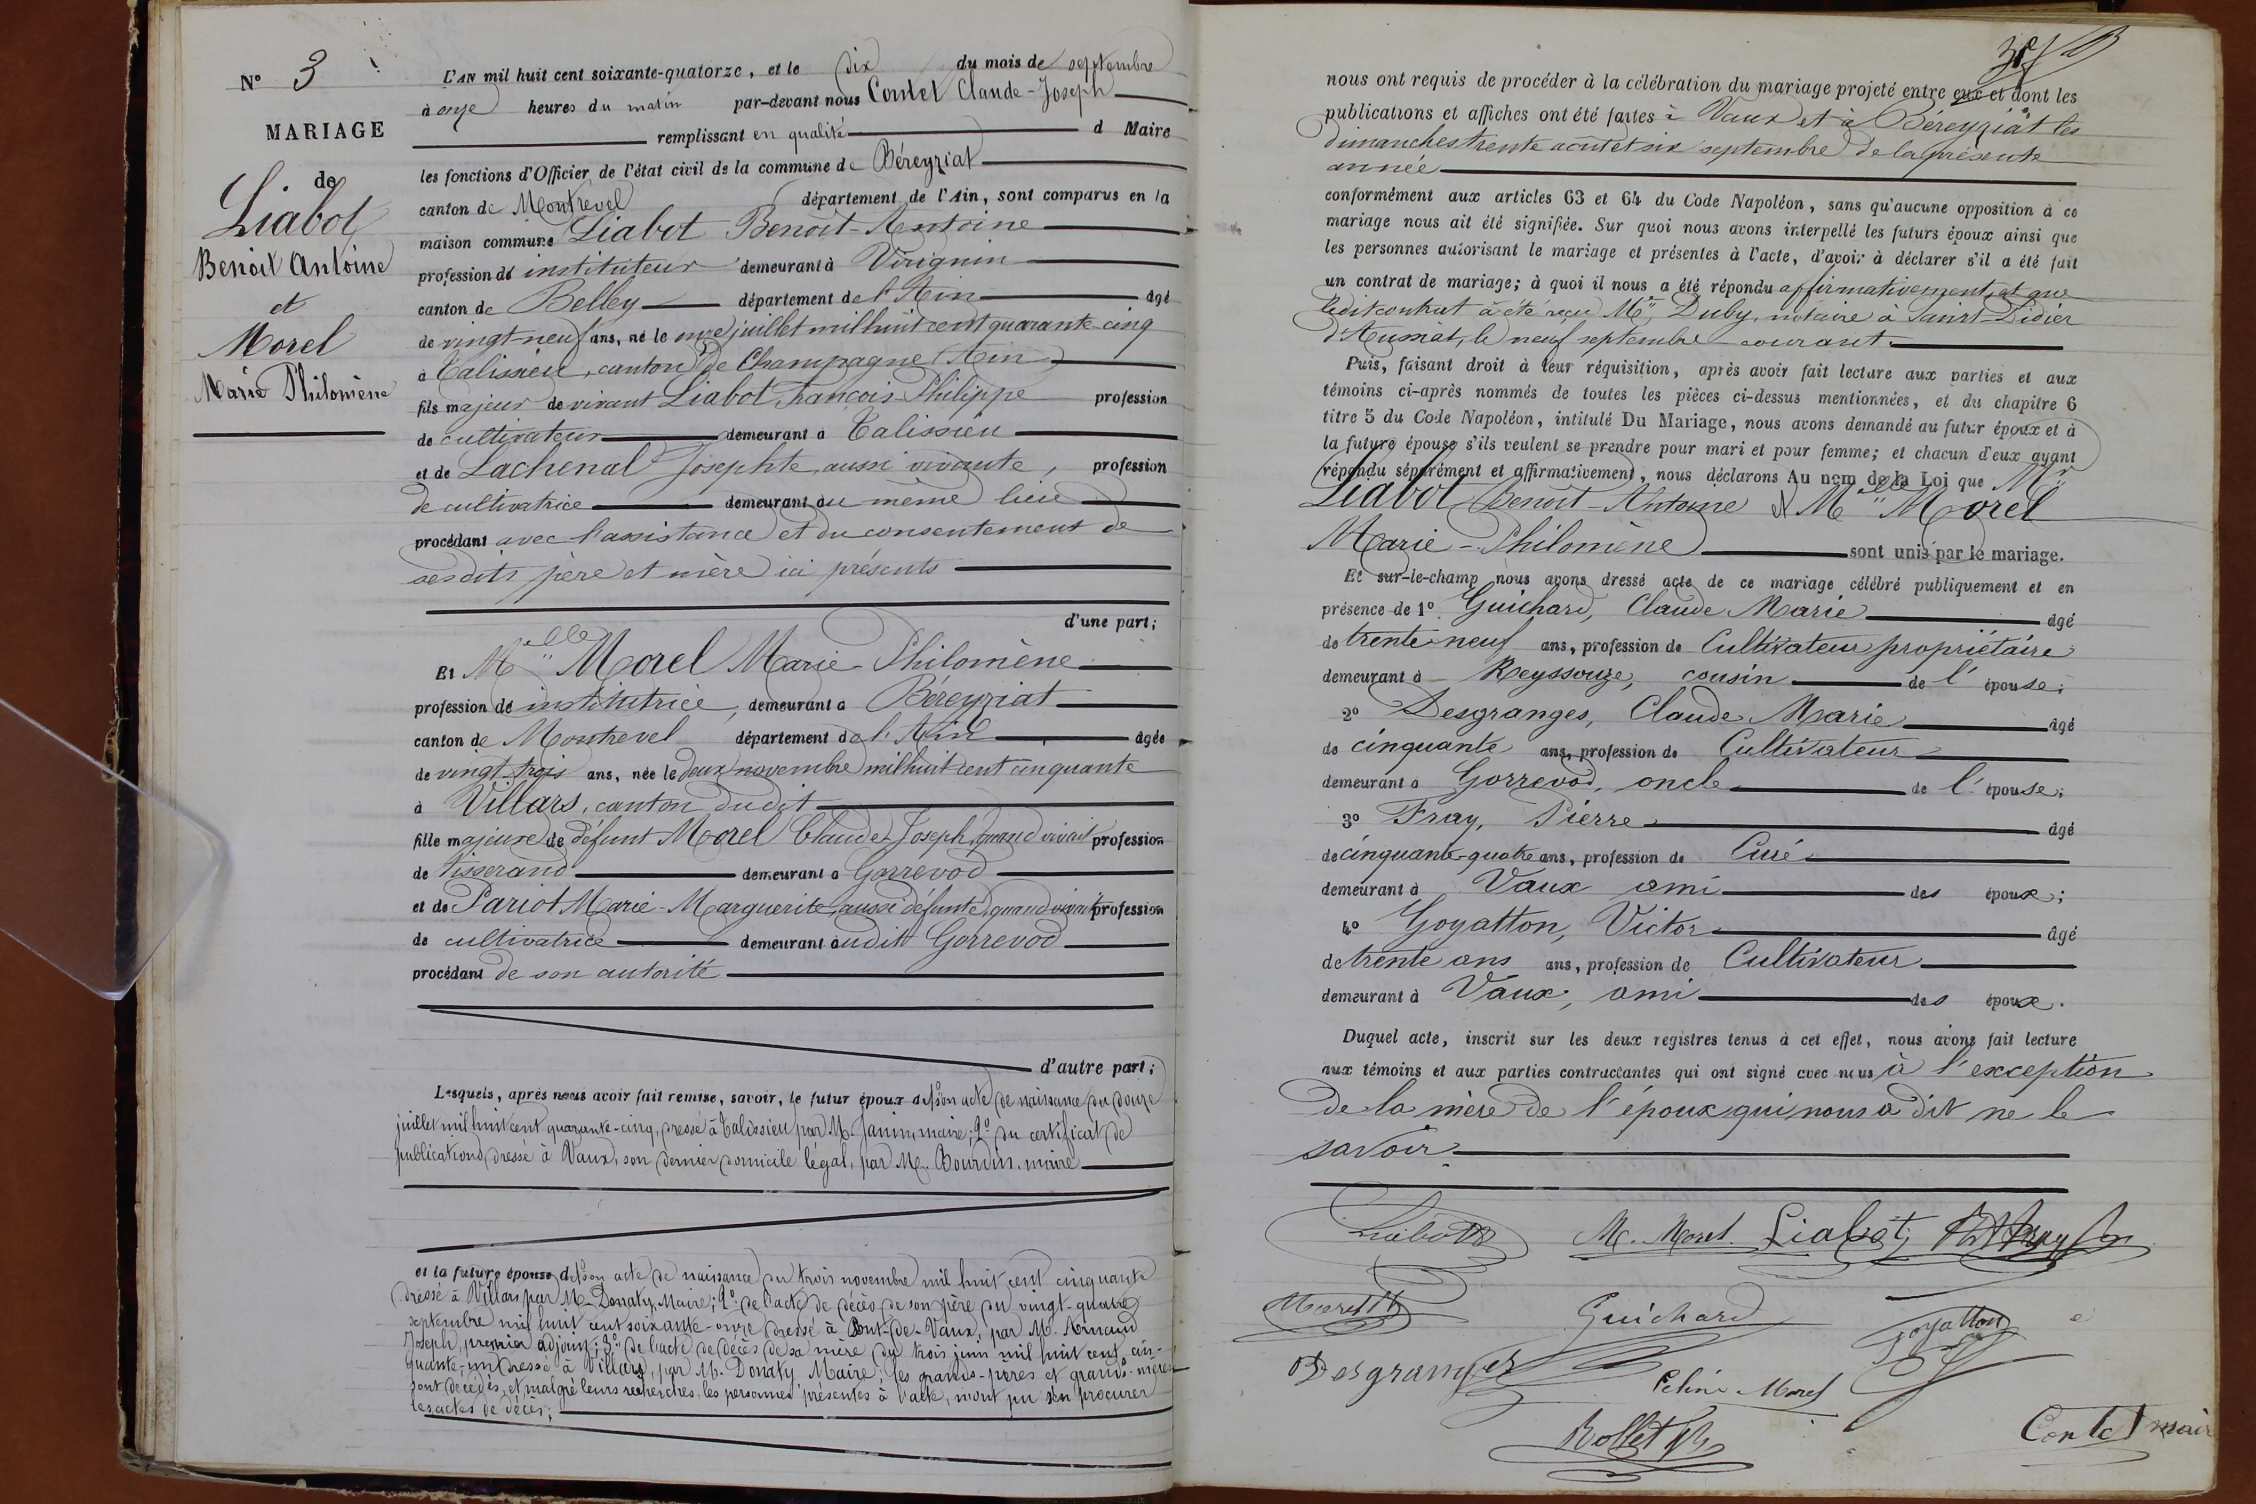 N° 3
MARIAGE
de
Liabot
Benoit Antoine
et
Morel
Marie Philomène
L'AN mil huit cent soixante-quatorze, et le dix du mois de septembre
à onze heures du matin par-devant nous Contet Claude-Joseph
remplissant en qualité d Maire
les fonctions d'Officier de l'état civil de la commune de Béreyziat
canton de Montrevel département de l'Ain, sont comparus en la
maison commune Liabot Benoit-Antoine
profession de instituteur demeurant à Virignin
canton de Belley département de l'Ain âgé
de vingt-neuf ans, né le onze juillet mil huit cent quarante-cinq
à Talissieu, canton de Champagne (Ain)
fils majeur de vivant Liabot François-Philippe profession
de cultivateur demeurant à Talissieu
et de Lachenal Josephte, aussi vivante, profession
de cultivatrice demeurant au même lieu
procédant avec l'assistance et du consentement de
sesdits père et mère ici présents
d'une part;
Et Melle Morel Marie-Philomène
profession de institutrice, demeurant à Béreyziat
canton de Montrevel département de l'Ain âgée
de vingt-trois ans, née le deux novembre mil huit cent cinquante
à Villars, canton dudit
fille majeure de défunt Morel Claude-Joseph, quand vivait profession
de tisserand demeurant à Gorrevod
et de Pariot Marie-Marguerite, aussi défunte, quand vivait profession
de cultivatrice demeurant audit Gorrevod
procédant de son autorité
d'autre part;
Lesquels, après nous avoir fait remise, savoir, le futur époux de 1° son acte de naissance du douze
juillet mil huit cent quarante-cinq, dressé à Talissieu par M. Janin, maire; 2° du certificat de
publications, dressé à Vaux, son dernier domicile légal, par M. Bourdin, maire
et la future épouse de 1° son acte de naissance du trois novembre mil huit cent cinquante
dressé à Villars par M. Donaty, Maire; 2° de l'acte de décès de son père du vingt-quatre
septembre mil huit cent soixante-onze dressé à Pont-de-Vaux, par M. Arnaud
Joseph, premier adjoint; 3° de l'acte de décès de sa mère du trois juin mil huit cent cin-
quante-un dressé à Villars, par M. Donaty, Maire; les grands-pères et grands-mères
sont décédés, et malgré leurs recherches, les personnes présentes à l'acte, n'ont pu s'en procurer
les actes de décès;
nous ont requis de procéder à la célébration du mariage projeté entre eux et dont les
publications et affiches ont été faites à Vaux et à Béreyziat les
dimanches trente août et six septembre de la présente
année
conformément aux articles 63 et 64 du Code Napoléon, sans qu'aucune opposition à ce
mariage nous ait été signifiée. Sur quoi nous avons interpellé les futurs époux ainsi que
les personnes autorisant le mariage et présentes à l'acte, d'avoir à déclarer s'il a été fait
un contrat de mariage; à quoi il nous a été répondu affirmativement, et que
ledit contrat a été reçu Me Duby, notaire à Saint-Didier
d'Aussiat, le neuf septembre courant.
Puis, faisant droit à leur réquisition, après avoir fait lecture aux parties et aux
témoins ci-après nommés de toutes les pièces ci-dessus mentionnées, et du chapitre 6
titre 5 du Code Napoléon, intitulé Du Mariage, nous avons demandé au futur époux et à
la future épouse s'ils veulent se prendre pour mari et pour femme; et chacun d'eux ayant
répondu séparément et affirmativement, nous déclarons Au nom de la Loi que Mr
Liabot Benoit-Antoine et Melle Morel
Marie-Philomène sont unis par le mariage.
Et sur-le-champ nous avons dressé acte de ce mariage célébré publiquement et en
présence de 1° Guichard, Claude Marie âgé
de trente-neuf ans, profession de Cultivateur propriétaire
demeurant à Reyssouze, cousin de l'épouse;
2° Desgranges, Claude Marie âgé
de cinquante ans, profession de Cultivateur
demeurant à Gorrevod, oncle de l'épouse;
3° Fray, Pierre âgé
de cinquante-quatre ans, profession de Curé
demeurant à Vaux ami des époux;
4° Goyatton, Victor âgé
de trente ans ans, profession de Cultivateur
demeurant à Vaux, ami des époux.
Duquel acte, inscrit sur les deux registres tenus à cet effet, nous avons fait lecture
aux témoins et aux parties contractantes qui ont signé avec nous à l'exception
de la mère de l'époux qui nous a dit ne le
savoir.
Liabot M. Morel Liabot
Morel Guichard Goyatton
Desgranges Celine Morel
Rollet Contet maire